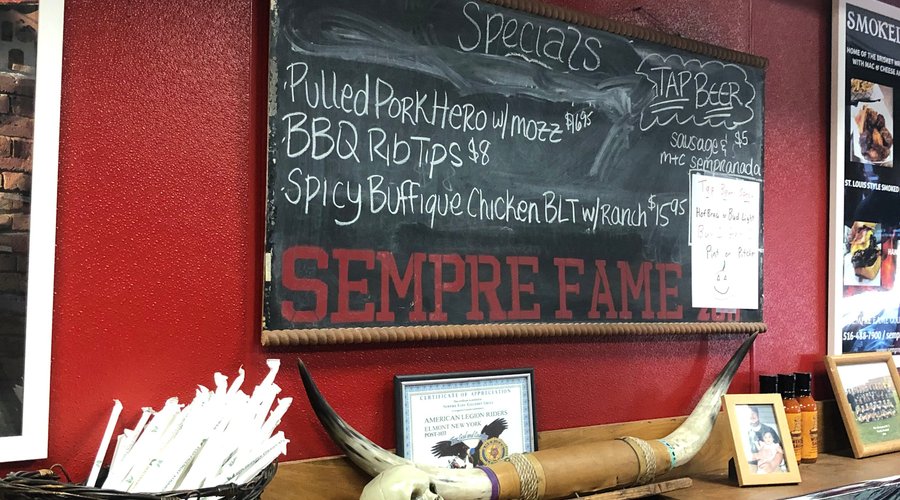 Specials
Pulled Pork Hero w/ mozz $16.95
BBQ Rib Tips $8
Spicy Buffique Chicken BLT w/ Ranch $15.95
TAP BEER
sausage & $5
m+c sempranada
Tap Beer
Hof Brau or Bud Light
Pint or Pitcher
SEMPRE FAME
CERTIFICATE OF APPRECIATION
AMERICAN LEGION RIDERS
ELMONT NEW YORK
POST 1033
SMOKED
HOME OF THE BRISKET
WITH MAC & CHEESE
ST. LOUIS STYLE SMOKED